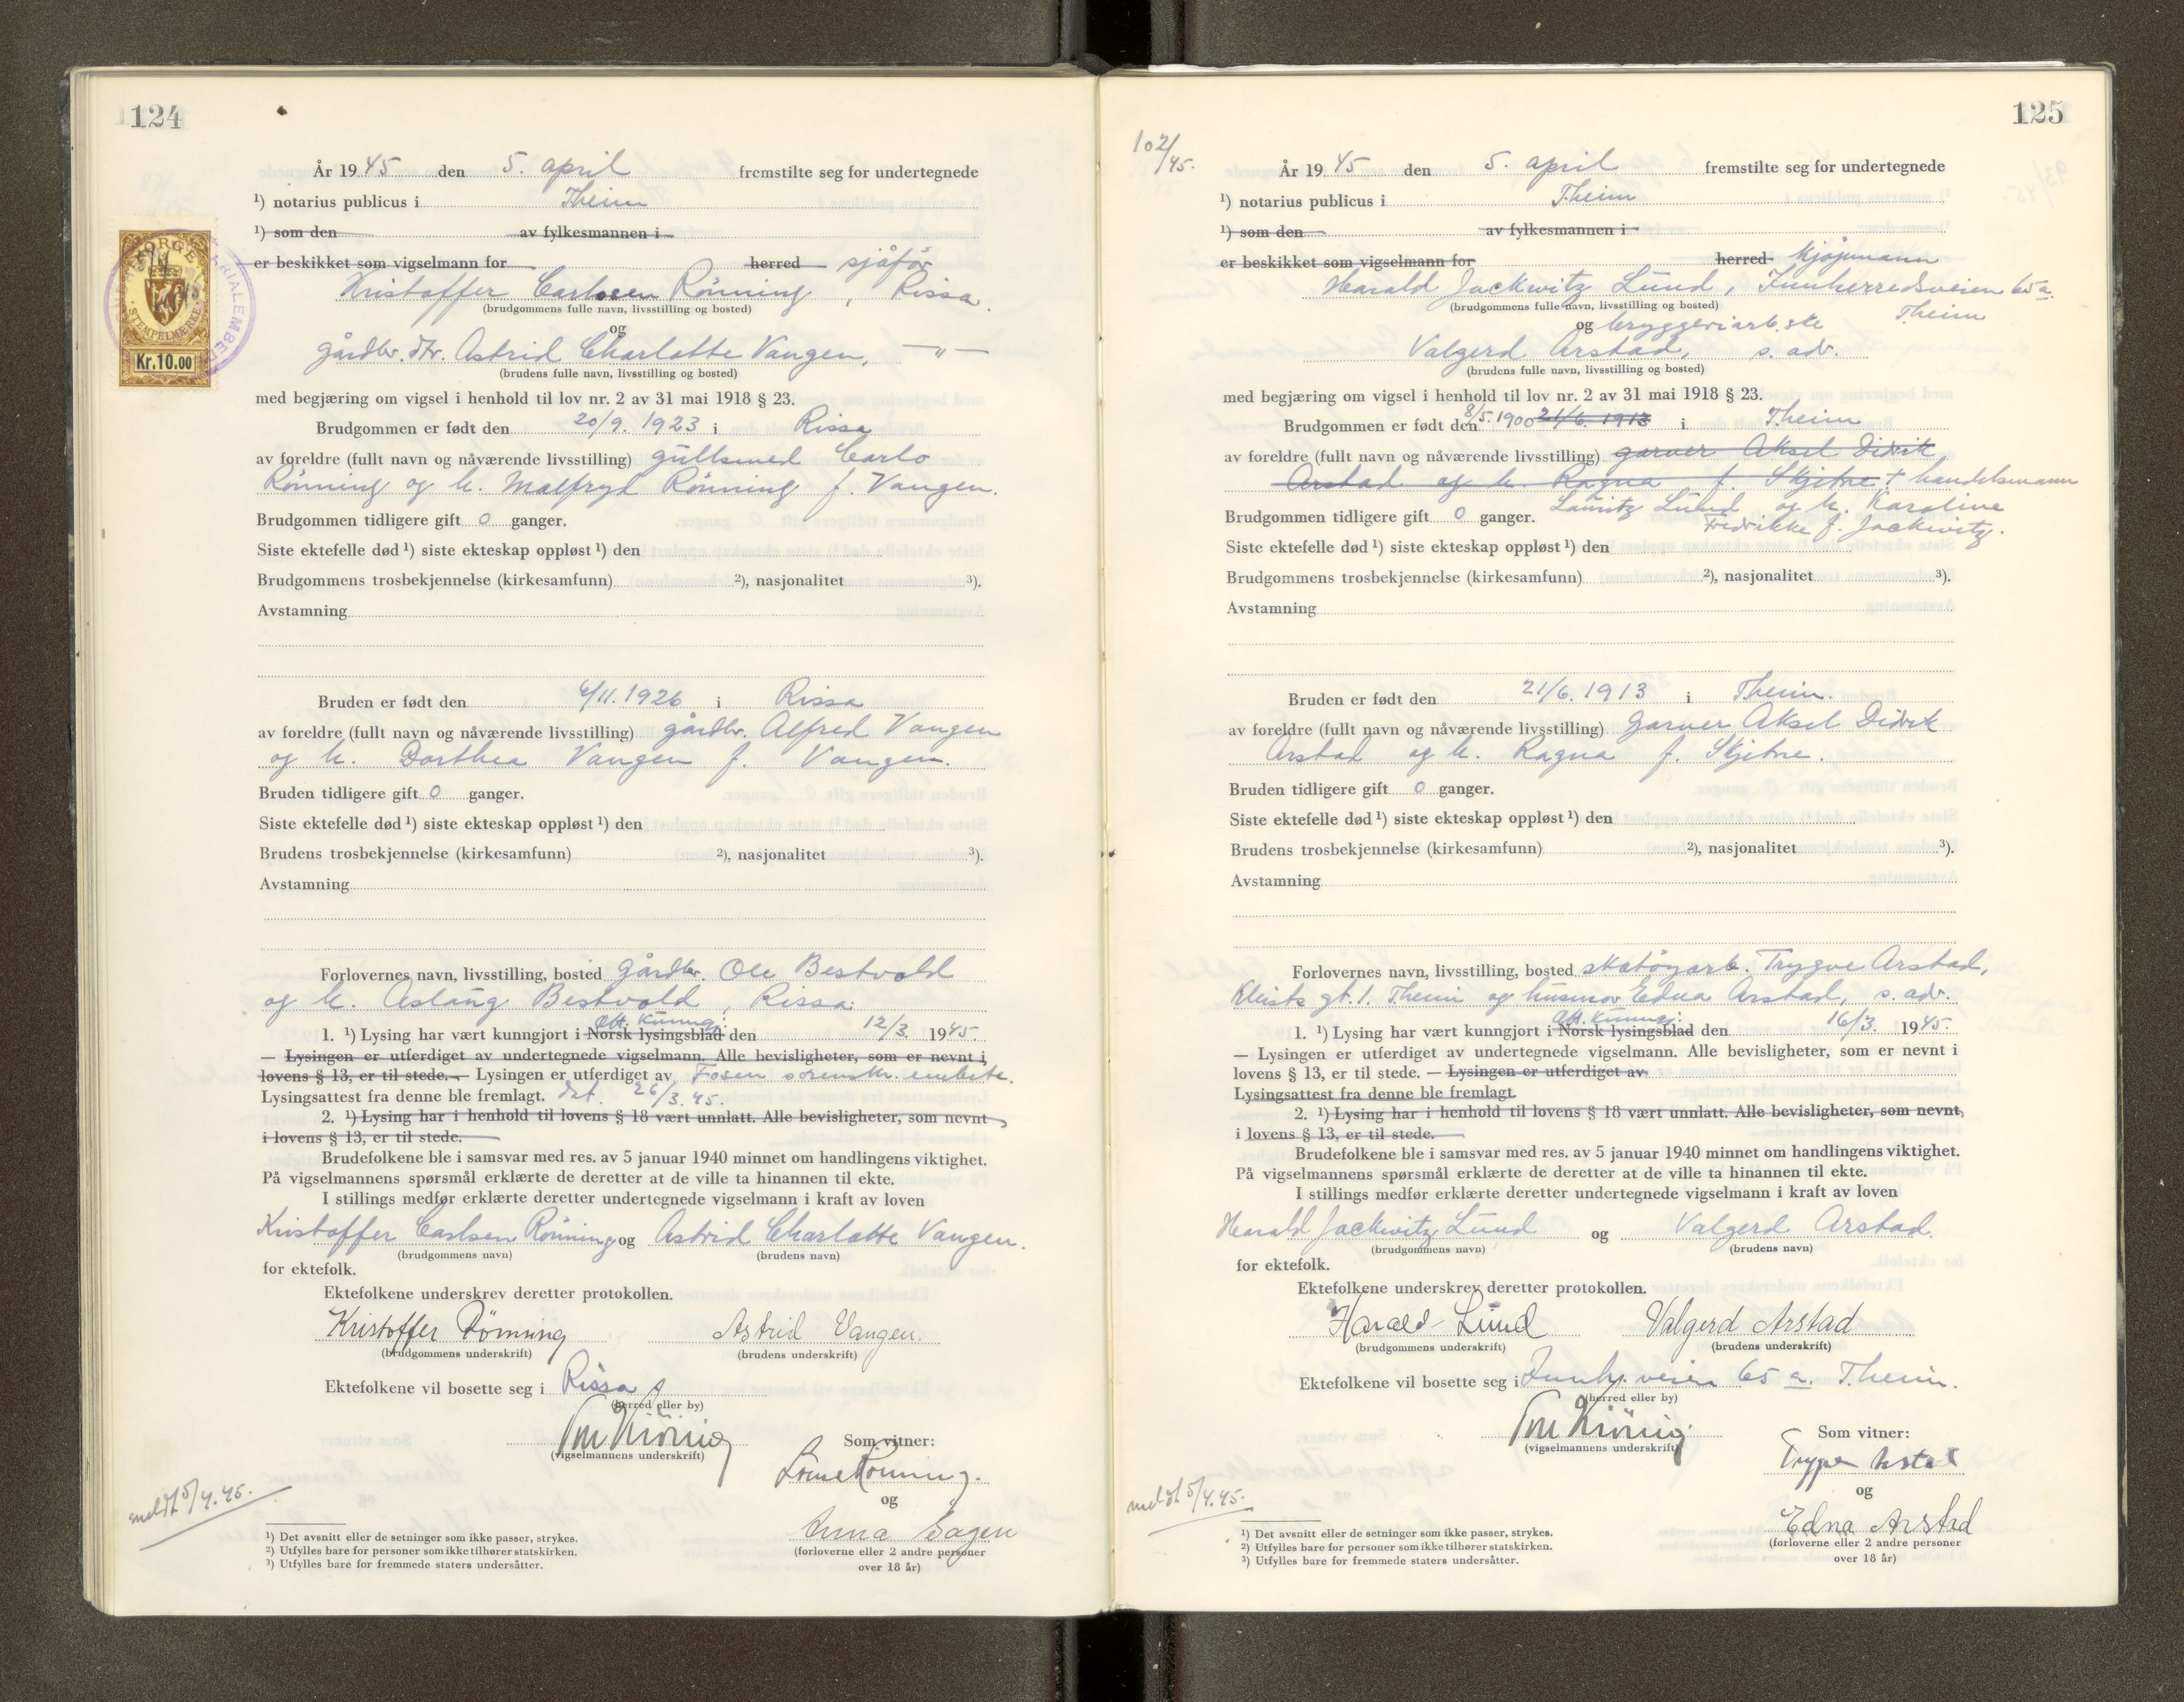 124
År 1945 den 5. april fremstilte seg for undertegnede
¹) notarius publicus i Theim
¹) som den av fylkesmannen i
er beskikket som vigselmann for herred sjåfør
Kristoffer Carlsen Rönning, Rissa.
(brudgommens fulle navn, livsstilling og bosted)
og
gårdbr. dtr. Astrid Charlotte Vangen, —"—
(brudens fulle navn, livsstilling og bosted)
NORGE
STEMPELMERKE
Kr.10.00
med begjæring om vigsel i henhold til lov nr. 2 av 31 mai 1918 § 23.
Brudgommen er født den 20/9. 1923 i Rissa
av foreldre (fullt navn og nåværende livsstilling) gullsmed Carlo
Rönning og h. Malfryd Rönning f. Vangen.
Brudgommen tidligere gift 0 ganger.
Siste ektefelle død ¹) siste ekteskap oppløst ¹) den
Brudgommens trosbekjennelse (kirkesamfunn) ²), nasjonalitet ³).
Avstamning
Bruden er født den 6/11. 1926 i Rissa
av foreldre (fullt navn og nåværende livsstilling) gårdbr. Alfred Vangen
og h. Dorthea Vangen f. Vangen.
Bruden tidligere gift 0 ganger.
Siste ektefelle død ¹) siste ekteskap oppløst ¹) den
Brudens trosbekjennelse (kirkesamfunn) ²), nasjonalitet ³).
Avstamning
Forlovernes navn, livsstilling, bosted gårdbr. Ole Bestvold
og h. Aslaug Bestvold, Rissa.
off. kunngj.
1. ¹) Lysing har vært kunngjort i Norsk lysingsblad den 12/3. 1945.
— Lysingen er utferdiget av undertegnede vigselmann. Alle bevisligheter, som er nevnt i
lovens § 13, er til stede. — Lysingen er utferdiget av Fosen sorenskr. embete.
Lysingsattest fra denne ble fremlagt. dat. 26/3.45.
2. ¹) Lysing har i henhold til lovens § 18 vært unnlatt. Alle bevisligheter, som nevnt
i lovens § 13, er til stede.
Brudefolkene ble i samsvar med res. av 5 januar 1940 minnet om handlingens viktighet.
På vigselmannens spørsmål erklærte de deretter at de ville ta hinannen til ekte.
I stillings medfør erklærte deretter undertegnede vigselmann i kraft av loven
Kristoffer Carlsen Rönning og Astrid Charlotte Vangen.
(brudgommens navn) (brudens navn)
for ektefolk.
Ektefolkene underskrev deretter protokollen.
Kristoffer Rönning Astrid Vangen.
(brudgommens underskrift) (brudens underskrift)
Ektefolkene vil bosette seg i Rissa
(herred eller by)
(vigselmannens underskrift)
Som vitner:
Rönning.
og
Anna Sagen
(forloverne eller 2 andre personer
over 18 år)
meldt 5/4.45.
¹) Det avsnitt eller de setninger som ikke passer, strykes.
²) Utfylles bare for personer som ikke tilhører statskirken.
³) Utfylles bare for fremmede staters undersåtter.
125
102/45.
År 1945 den 5. april fremstilte seg for undertegnede
¹) notarius publicus i Theim
¹) som den av fylkesmannen i
er beskikket som vigselmann for herred kjøpmann
Harald Jackwitz Lund, Innherredsveien 65 a.
(brudgommens fulle navn, livsstilling og bosted) Theim
og bryggeriarb.ske
Valgerd Arstad, s. adr.
(brudens fulle navn, livsstilling og bosted)
med begjæring om vigsel i henhold til lov nr. 2 av 31 mai 1918 § 23.
Brudgommen er født den 8/5. 1900 21/6. 1913 i Theim
av foreldre (fullt navn og nåværende livsstilling) garver Aksel Didrik
Arstad og h. Ragna f. Skjetne. † handelsmann
Brudgommen tidligere gift 0 ganger. Lauritz Lund og h. Karoline
Fredrikke f. Jackwitz.
Siste ektefelle død ¹) siste ekteskap oppløst ¹) den
Brudgommens trosbekjennelse (kirkesamfunn) ²), nasjonalitet ³).
Avstamning
Bruden er født den 21/6. 1913 i Theim.
av foreldre (fullt navn og nåværende livsstilling) garver Aksel Didrik
Arstad og h. Ragna f. Skjetne.
Bruden tidligere gift 0 ganger.
Siste ektefelle død ¹) siste ekteskap oppløst ¹) den
Brudens trosbekjennelse (kirkesamfunn) ²), nasjonalitet ³).
Avstamning
Forlovernes navn, livsstilling, bosted skotøyarb. Trygve Arstad,
Kleists gt. 1. Theim og husmor Edna Arstad, s. adr.
off. kunngj.
1. ¹) Lysing har vært kunngjort i Norsk lysingsblad den 16/3. 1945.
— Lysingen er utferdiget av undertegnede vigselmann. Alle bevisligheter, som er nevnt i
lovens § 13, er til stede. — Lysingen er utferdiget av
Lysingsattest fra denne ble fremlagt.
2. ¹) Lysing har i henhold til lovens § 18 vært unnlatt. Alle bevisligheter, som nevnt,
i lovens § 13, er til stede.
Brudefolkene ble i samsvar med res. av 5 januar 1940 minnet om handlingens viktighet.
På vigselmannens spørsmål erklærte de deretter at de ville ta hinannen til ekte.
I stillings medfør erklærte deretter undertegnede vigselmann i kraft av loven
Harald Jackwitz Lund og Valgerd Arstad.
(brudgommens navn) (brudens navn)
for ektefolk.
Ektefolkene underskrev deretter protokollen.
Harald Lund Valgerd Arstad
(brudgommens underskrift) (brudens underskrift)
Ektefolkene vil bosette seg i Innh. veien 65 a. Theim.
(herred eller by)
(vigselmannens underskrift)
Som vitner:
Trygve Arstad
og
Edna Arstad
(forloverne eller 2 andre personer
over 18 år)
meldt 5/4.45.
¹) Det avsnitt eller de setninger som ikke passer, strykes.
²) Utfylles bare for personer som ikke tilhører statskirken.
³) Utfylles bare for fremmede staters undersåtter.